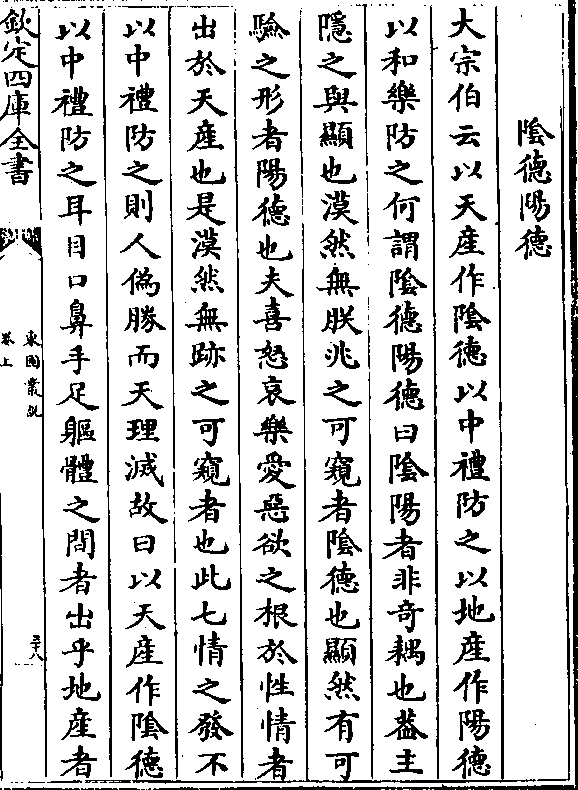 陰德陽德
大宗伯云以天産作陰德以中禮防之以地産作陽德
以和樂防之何謂陰德陽德曰陰陽者非奇耦也葢主
隱之與顯也漠然無朕兆之可窺者陰德也顯然有可
驗之形者陽德也夫喜怒哀樂愛惡欲之根於性情者
出於天産也是漠然無跡之可窺者也此七情之發不
以中禮防之則人偽勝而天理滅故曰以天産作陰德
以中禮防之耳目口鼻手足軀體之間者出乎地産者
欽定四庫全書
東園叢說
卷上
三十八